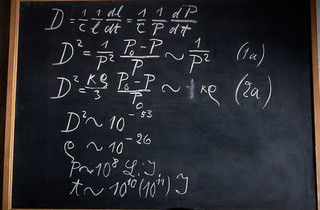 D = 1/c 1/l dl/dt = 1/c 1/P dP/dt
D² = 1/P² P₀-P/P ~ 1/P² (1a)
D² = κϱ/3 P₀-P/P₀ ~ κϱ (2a)
D² ~ 10⁻⁵³
ϱ ~ 10⁻²⁶
P ~ 10⁸ L.J.
t ~ 10¹⁰(10¹¹) J